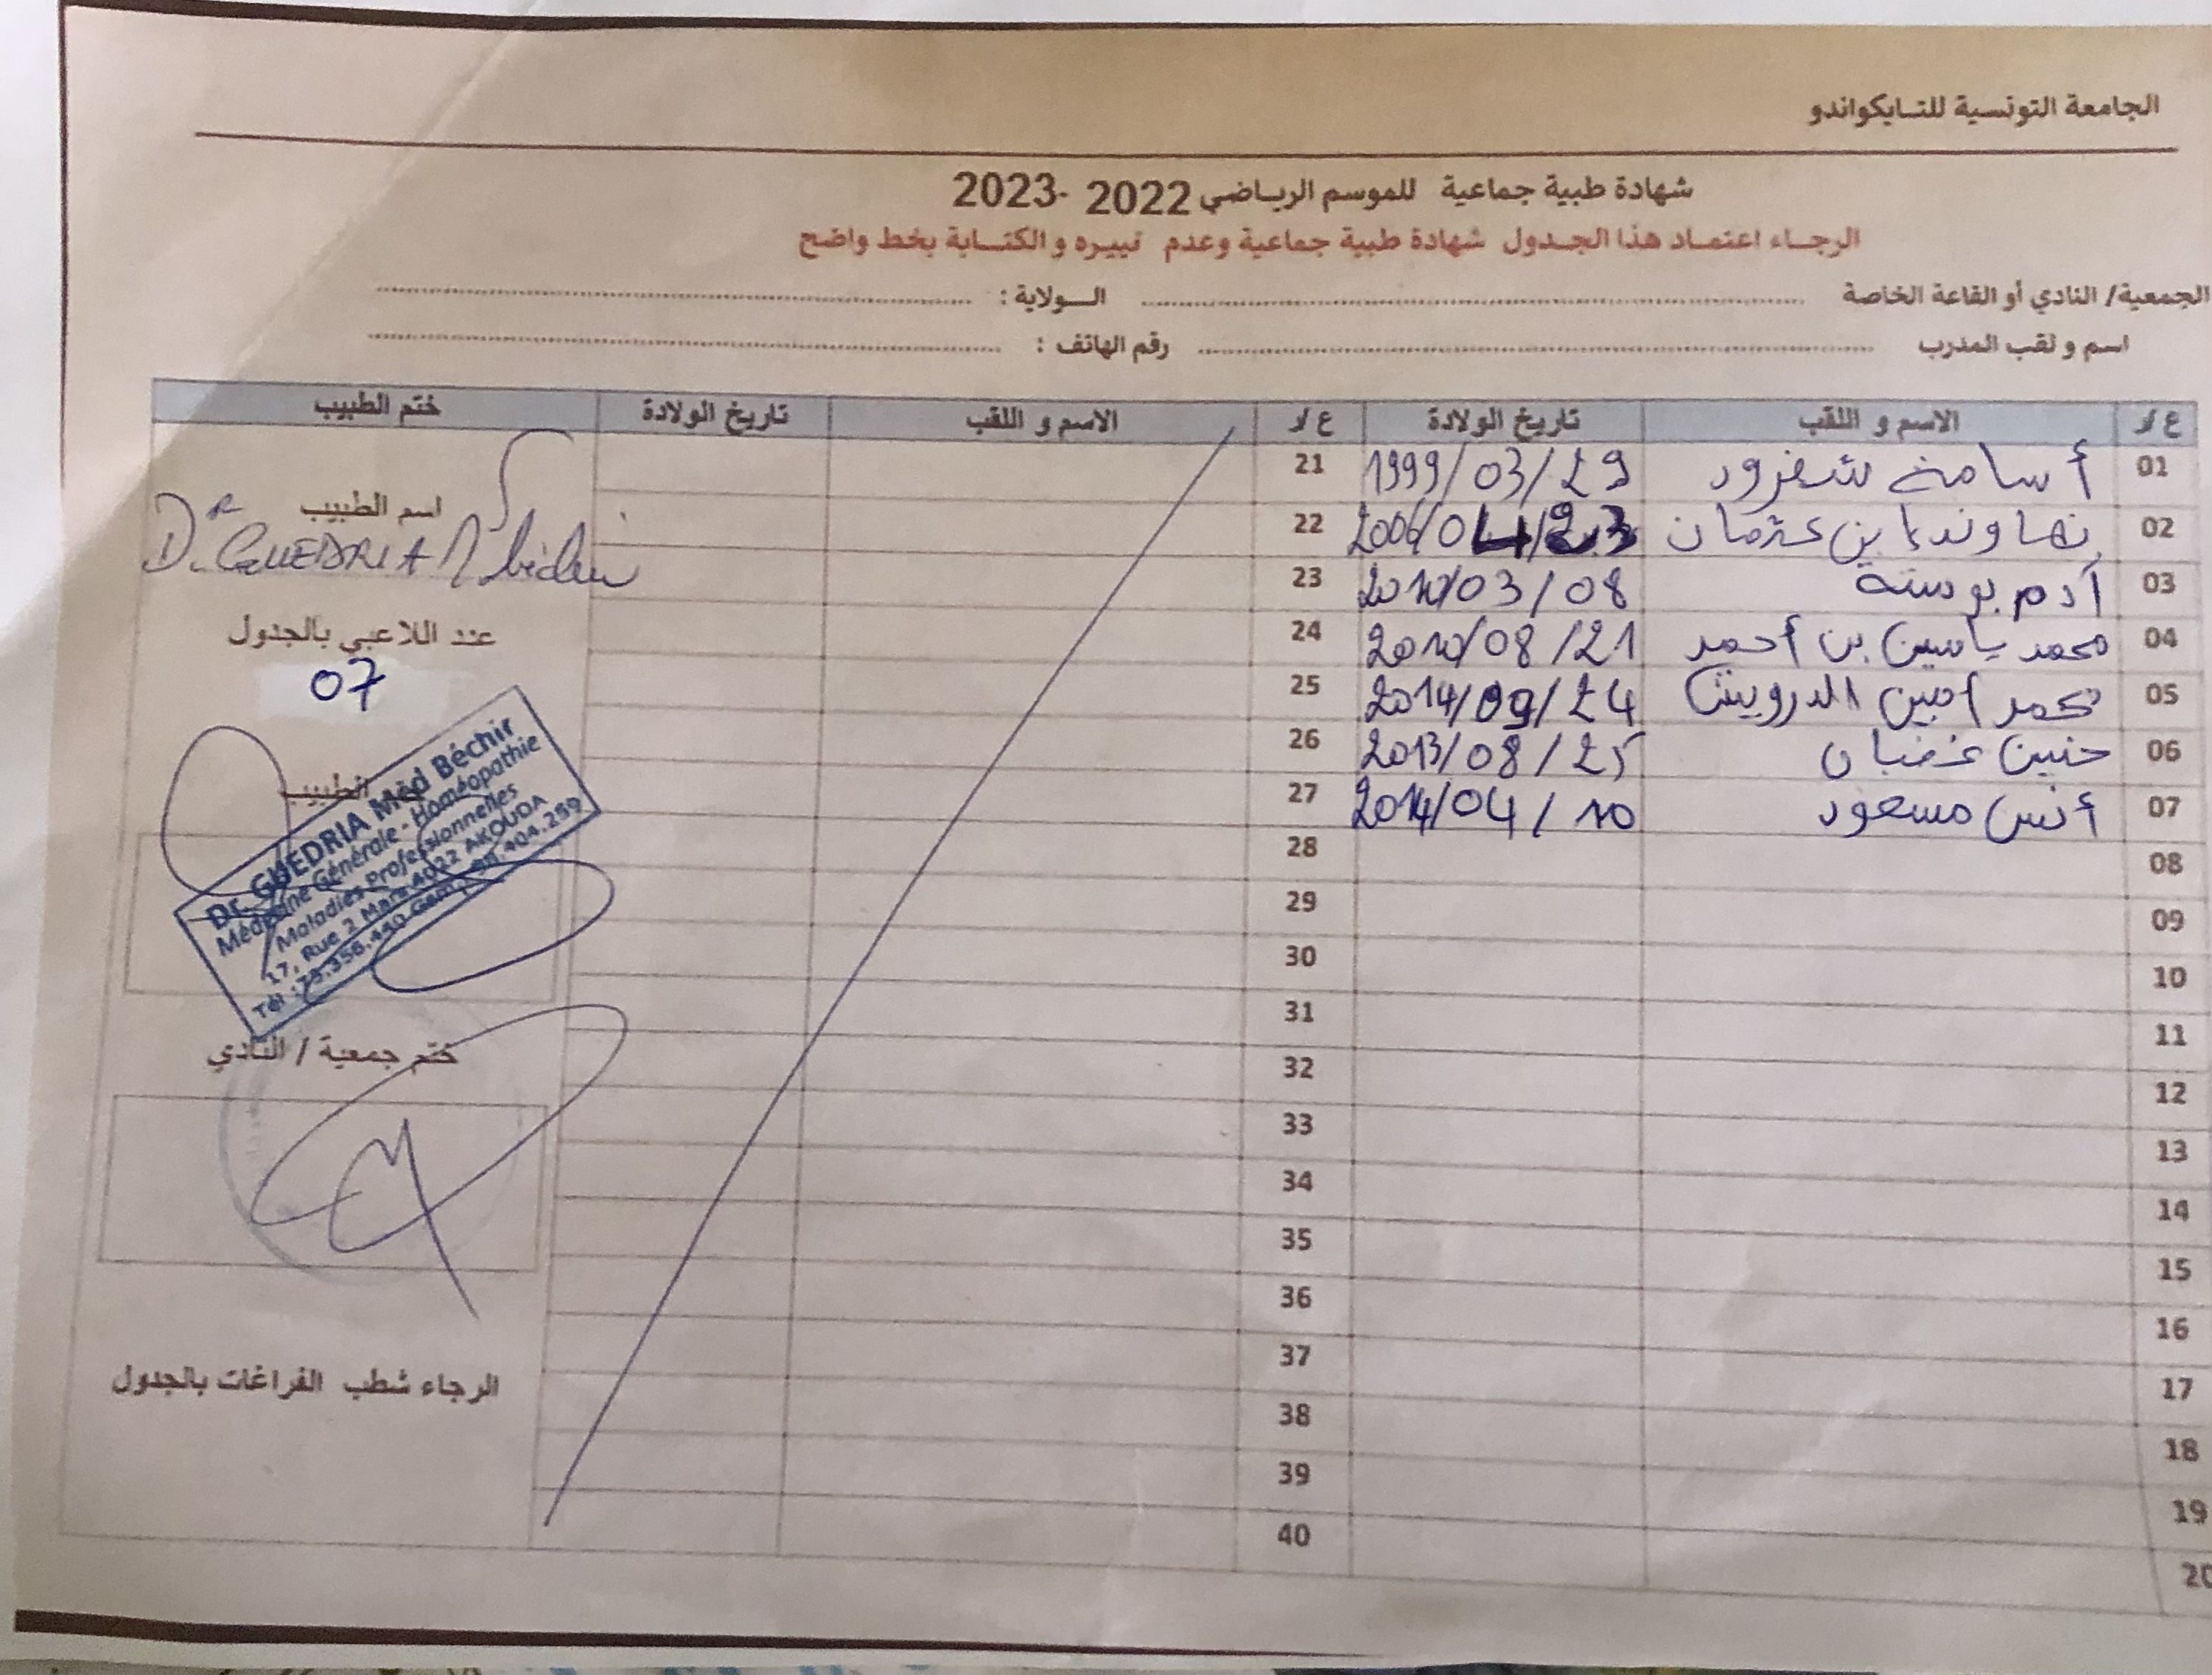 الجامعة التونسية للتايكواندو
شهادة طبية جماعية للموسم الرياضي 2022 -2023
الرجاء اعتماد هذا الجدول شهادة طبية جماعية وعدم تييره و الكتابة بخط واضح
الجمعية/ النادي أو القاعة الخاصة ........ الولاية : ........
اسم و لقب المدرب ........ رقم الهاتف : ........
ع/ر الاسم و اللقب تاريخ الولادة ع/ر الاسم و اللقب تاريخ الولادة ختم الطبيب
01 أسامة شفرود 1999/03/29 21
02 نهاوند بن عثمان 2006/04/23 22
03 آدم بوستة 2010/03/08 23
04 محمد ياسين بن أحمد 2010/08/21 24
05 محمد أمين الدرويش 2014/09/24 25
06 حنين غضبان 2013/08/25 26
07 أنس مسعود 2014/04/10 27
08 28
09 29
10 30
11 31
12 32
13 33
14 34
15 35
16 36
17 37
18 38
19 39
20 40
اسم الطبيب
Dr GUEDRIA
عند اللاعبي بالجدول
07
الطبيب
Dr. GUEDRIA Méd Béchir
Médecine Générale - Homéopathie
Maladies Professionnelles
17, Rue 2 Mars 4022 AKOUDA
Tél : 73.356.440 Gsm : 98.404.259
ختم جمعية / النادي
الرجاء شطب الفراغات بالجدول